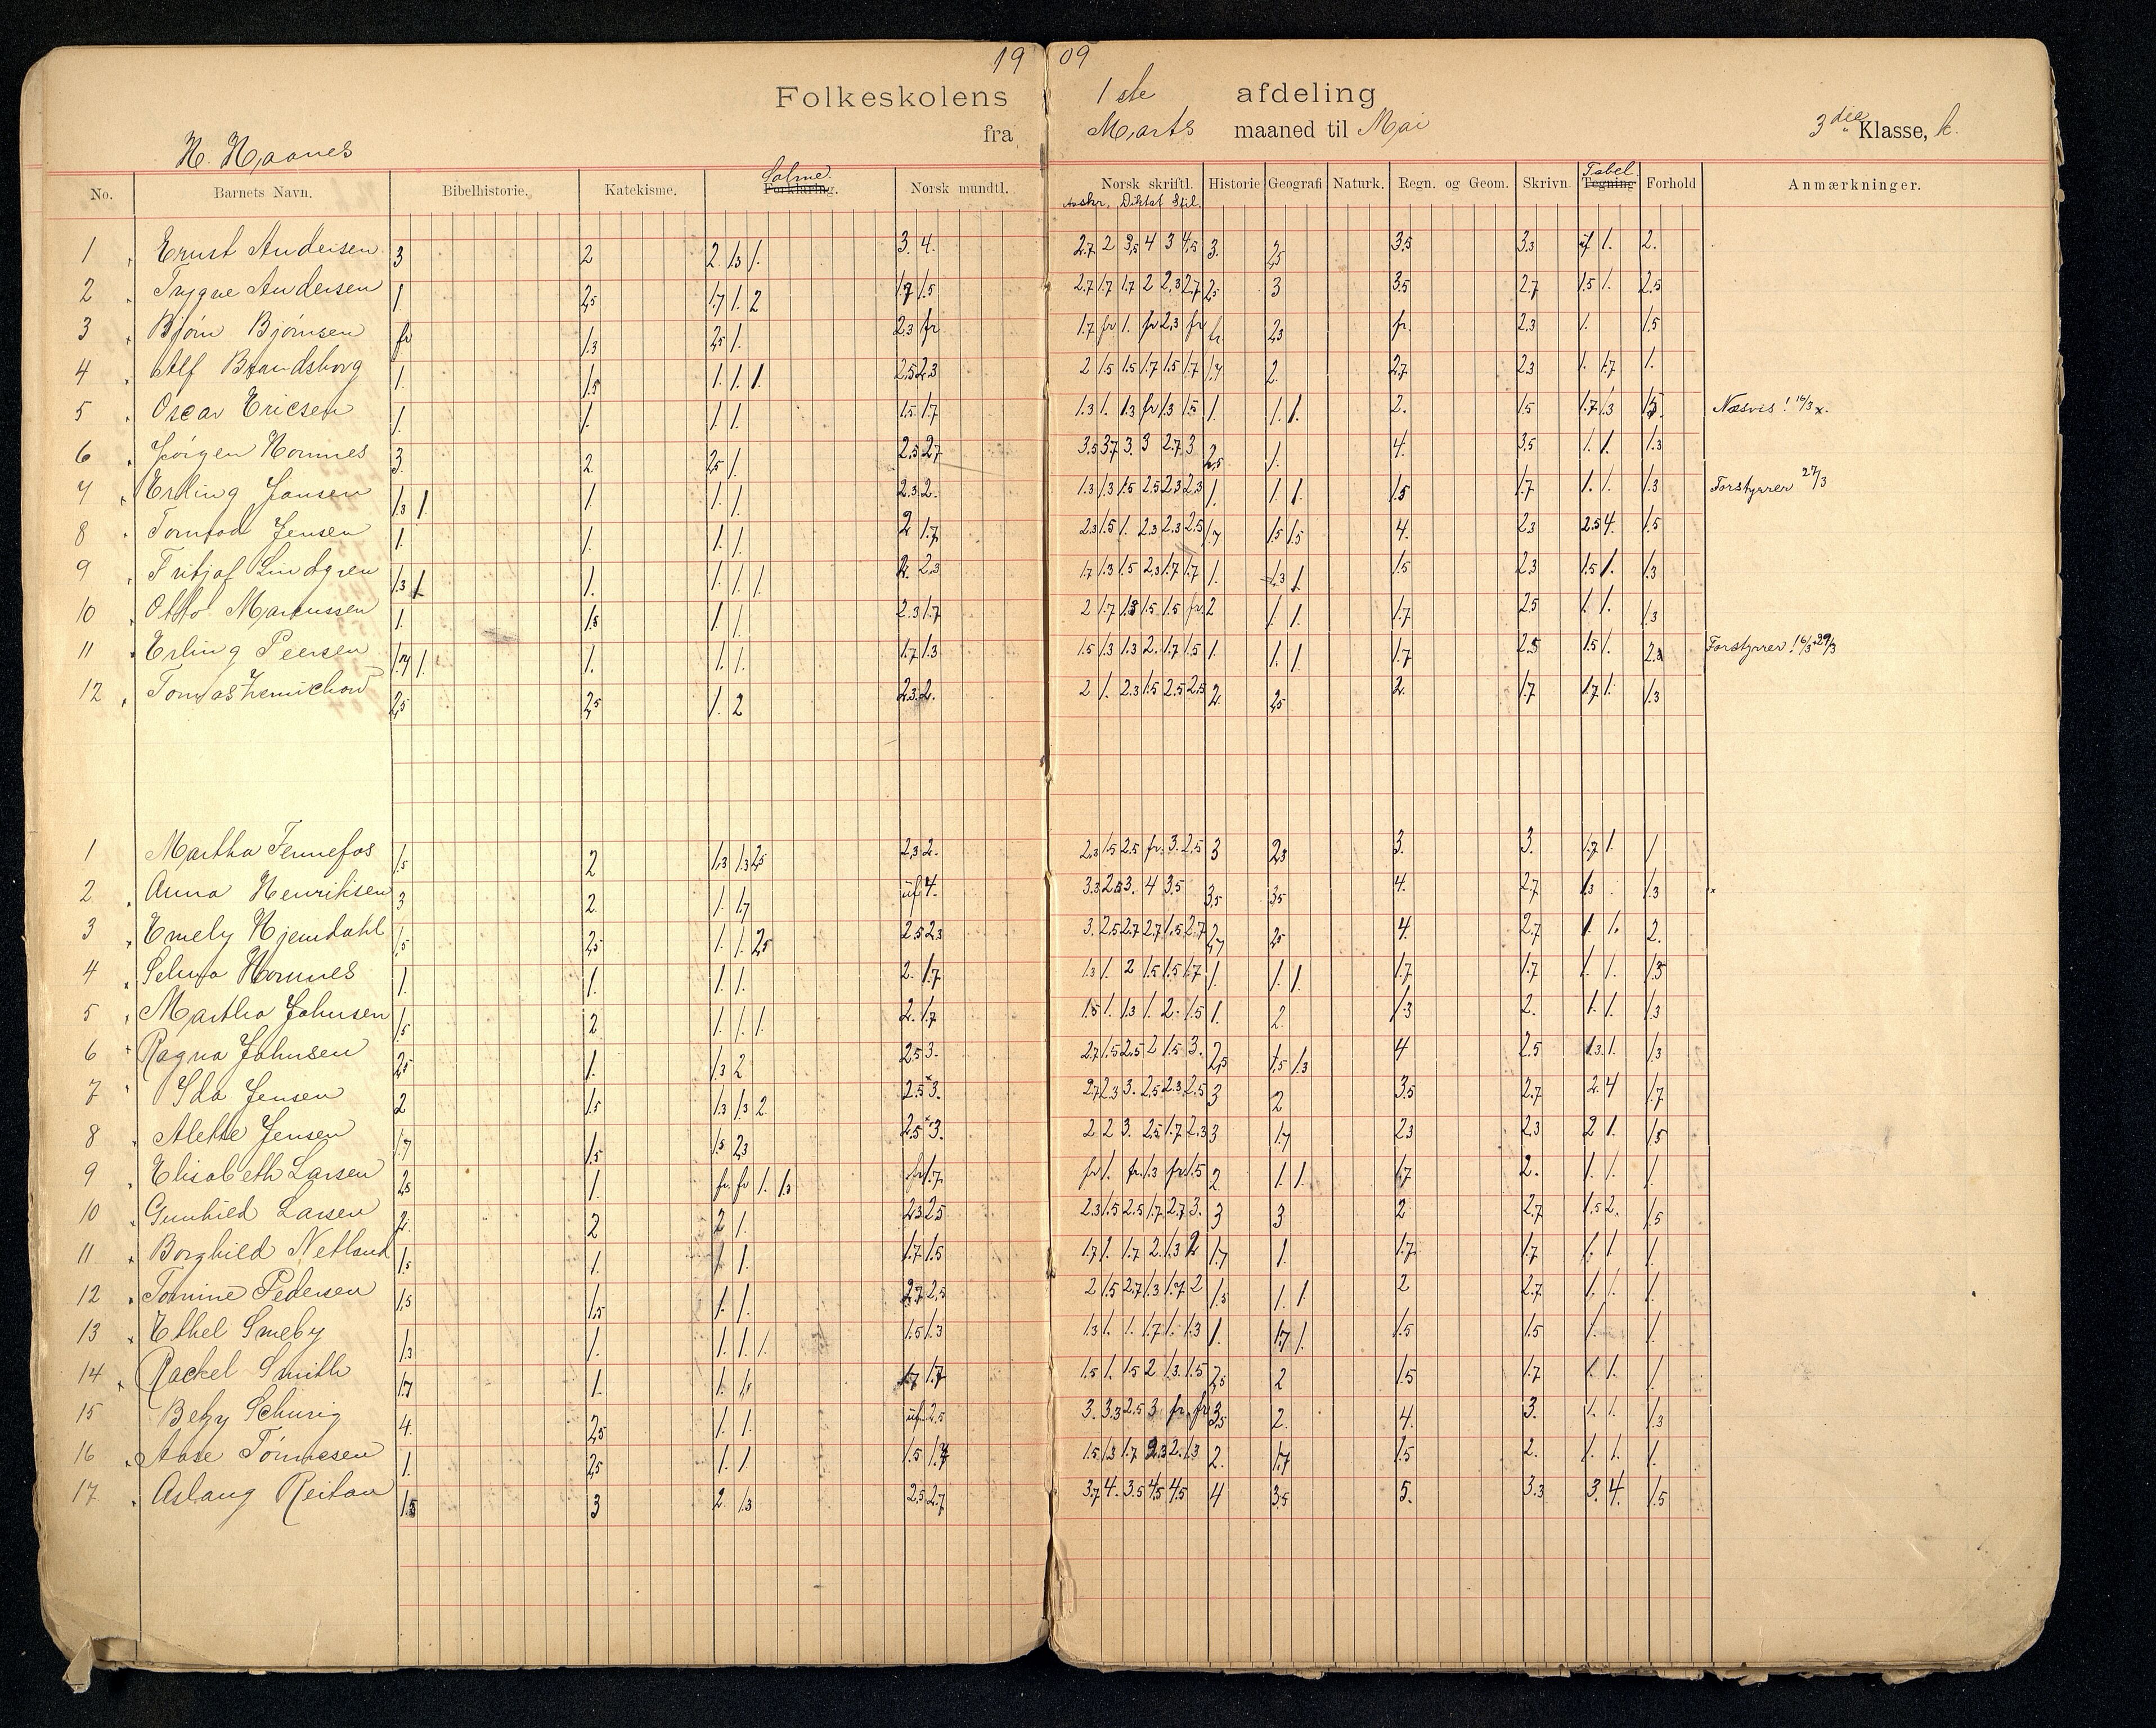 19 09
Folkeskolens 1ste afdeling
fra Marts maaned til Mai 3die Klasse, k.
H. Haanes
No. Barnets Navn. Bibelhistorie. Katekisme. Forklaring. Salme. Norsk mundtl. Norsk skriftl. Historie Geografi Naturk. Regn. og Geom. Skrivn. Tegning Tabel. Forhold Anmærkninger.
Avskr. Diktat Stil.
1 Ernst Andersen 3 2 2 1.3 1. 3. 4. 2.7 2 3,5 4 3 4,5 3. 2,5 3.5 3.3 1. 2.
2 Trygve Andersen 1 2,5 1.7 1. 2 1.7 1.5 2.7 1.7 1.7 2 2.3 2.7 2,5 3 3.5 2.7 1.5 1. 2.5
3 Bjørn Bjørnsen fr 1.3 2,5 1. 2.3 fr 1.7 fr 1. fr 2,3 fr 2,3 fr. 2.3 1. 1.5
4 Alf Brandsborg 1. 1.5 1. 1. 1. 2.5 2.3 2 1.5 1.5 1.7 1.5 1.7 1.7 2. 2.7 2.3 1. 1.7 1.
5 Oscar Ericsen 1. 1. 1. 1. 1.5 1.7 1.3 1. 1.3 fr 1.3 1.5 1. 1. 1. 2. 1.5 1.7 1.3 1.5. Næsvis! 16/3 x.
6 Jørgen Homnes 3. 2. 2,5 1. 2.5 2.7 3.5 3.7 3. 3 2.7 3 2,5 1. 4. 3.5 1. 1. 1.3
7 Erling Jansen 1.3 1. 1. 1. 1. 2.3 2. 1.3 1.3 1.5 2.5 2.3 2.3 1. 1. 1. 1.5 1.7 1. 1. 1.3 Forstyrrer 27/3
8 Tormod Jensen 1. 1. 1. 1. 2 1.7. 2.3 1.5 1. 2.3 2.3 2.5 1.7 1.5 1.5 4. 2.3 2.5 4. 1.5
9 Fritjof Lindgren 1.3 1 1. 1. 1. 1. 2. 2.3 1.7 1.3 1.5 2.3 1.7 1.7 1. 1.3 1. 1.5 2.3 1.5 1. 1.3
10 Otto Marcussen 1. 1.5 1. 1. 2.3 1.7. 2 1.7 1.3 1.5 1.5 fr. 2 1. 1. 1.7. 2.5 1. 1. 1.3
11 Erling Peersen 1.7 1. 1. 1. 1. 1.7 1.3 1.5 1.3 1.3 2. 1.7 1.5 1. 1. 1. 1.7 2.5 1.5 1. 2.3 Forstyrrer! 16/3 + 29/3
12 Tomas 2,5 2,5 1. 2 2.3 2. 2 1. 2.3 1.5 2.5 2.5 2. 2,5 2. 1.7 1.7 1. 1.3
1 Martha Fennefos 1.5 2 1.3 1.3 2,5 2.3 2. 2.3 1.5 2.5 fr. 3. 2.5 3 2,3 3. 3. 1.7 1. 1
2 Anna Henriksen 3 2. 1. 1.7 uf 4. 3.3 2.5 3. 4 3.5 3,5 3,5 4. 2.7 1.3 1.3
3 Emely Hjemdahl 1.5 2,5 1. 1. 2,5 2.5 2.3 3. 2.5 2.7 2.7 1.5 2.7 2,7 2,5 4. 2.7 1. 1. 2.
4 Selma Homnes 1. 1. 1. 1. 2. 1.7. 1.3 1. 2 1.5 1.5 1.7 1. 1. 1. 1.7 1.7 1. 1. 1.3
5 Martha Johnsen 1.5 2. 1. 1. 1. 2. 1.7 1.5 1. 1.3 1. 2. 1.5 1. 2. 1.3 2. 1. 1. 1.3
6 Ragna Johnsen 2,5 1. 1.3 2 2.5 3. 2.7 1.5 2.5 2 1.5 3. 2,5 1.5 1.3 4 2.5 1.3. 1. 1.3
7 Ida Jensen 2 1.5 1.3 1.3 2. 2.5 3. 2.7 2.3 3. 2.5 2.3 2.5 3 2 3.5 2.7 2. 4 1.7
8 Alette Jensen 1.7 1.5 1.5 2,3 2.5 3. 2 2 3. 2.5 1.7 2.3 3 1.7 2.3 2.3 2 1. 1.5
9 Elisabeth Larsen 2,5 1. fr. fr 1. 1.3 fr 1.7. fr 1. fr. 1.3 fr 1.5 2. 1. 1. 1.7 2. 1. 1. 1.
10 Gunhild Larsen 2. 2 2 1. 2.3 2.5 2.3 1.5 2.5 1.7 2.7 3. 3 3 2 2.7 1.5 2. 1.5
11 Borghild Netland 1.5 1. 1 1. 1.7 1.5 1.7 1. 1.7 2. 1.3 2 1.7 1. 1.7. 1.7 1. 1 1.
12 Tomine Pedersen 1.5 1.5 1. 1. 2.7 2.5 2 1.5 2.7 1.3 1.7 2 1.3 1. 1. 2 2.7 1. 1. 1.
13 Ethel Smeby 1.3 1. 1. 1. 1. 1.5 1.3 1.3 1. 1. 1.7 1. 1.3 1. 1.7 1. 1.5 1.5 1. 1.
14 Rackel Smith 1.7 1. 1. 1. 1.7 1.7 1.5 1. 1.5 2 1.3 1.5 2,5 2 1.5 1.7 1. 1. 1.
15 Betzy Schurig 4. 2,5 1. 1. uf. 2.5 3. 3.3 2.5 3 fr. fr 3,5 2. 4. 3. 1. 1. 1.3
16 Aase Tönnesen 1. 2,5 1. 1. 1.5 1.7 1.5 1.3 1.7 2.3 2. 1.3 2. 1.7 1.5 2. 1. 1. 1.
17 Aslaug Reitan 1.5 3 2. 1.3 2.5 2.7 3.7 4. 3.5 4.5 4.5 4 3,5 5. 3.3 3. 4. 1.5